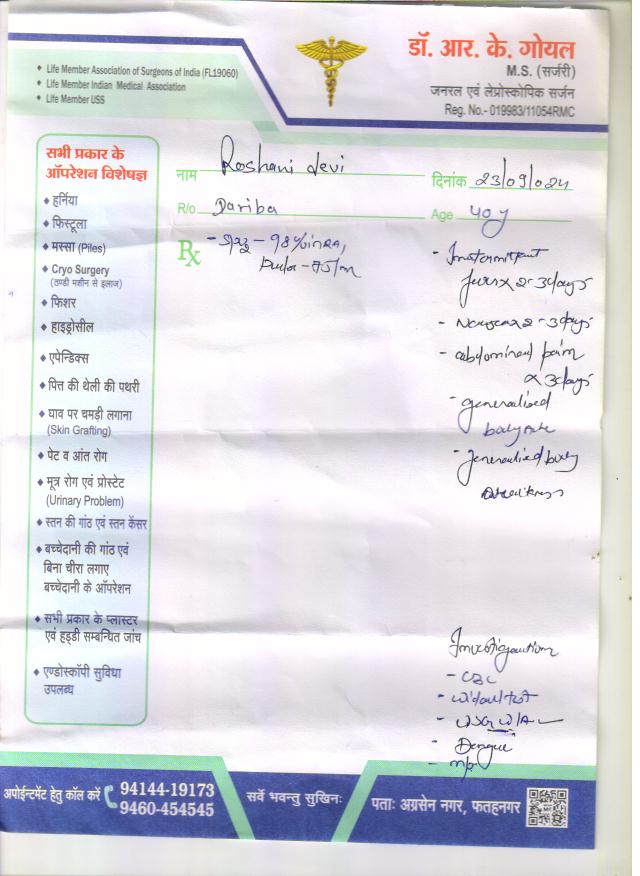 डॉ. आर. के. गोयल
M.S. (सर्जरी)
जनरल एवं लेप्रोस्कोपिक सर्जन
Reg. No.- 019983/11054RMC
♦ Life Member Association of Surgeons of India (FL19060)
♦ Life Member Indian Medical Association
♦ Life Member USS
सभी प्रकार के
ऑपरेशन विशेषज्ञ
♦ हर्निया
♦ फिस्टूला
♦ मस्सा (Piles)
♦ Cryo Surgery
(ठण्डी मशीन से इलाज)
♦ फिशर
♦ हाइड्रोसील
♦ एपेन्डिक्स
♦ पित्त की थेली की पथरी
♦ घाव पर चमड़ी लगाना
(Skin Grafting)
♦ पेट व आंत रोग
♦ मूत्र रोग एवं प्रोस्टेट
(Urinary Problem)
♦ स्तन की गांठ एवं स्तन केंसर
♦ बच्चेदानी की गांठ एवं
बिना चीरा लगाए
बच्चेदानी के ऑपरेशन
♦ सभी प्रकार के प्लास्टर
एवं हड्डी सम्बन्धित जांच
♦ एण्डोस्कॉपी सुविधा
उपलब्ध
नाम Roshani devi
दिनांक 23/09/024
R/o Dariba
Age 40 y
Rx
- 98% in RA,
- Intermittent
x 2-3days
- x 2-3days
- abdominal pain
x 3days
- generalised
body
- generalised body
Investigation
- CBC
- widal test
- USG W/A
- Dengue
- M/P
अपोईन्टमेंट हेतु कॉल करें 94144-19173
9460-454545
सर्वे भवन्तु सुखिनः
पताः अग्रसेन नगर, फतहनगर